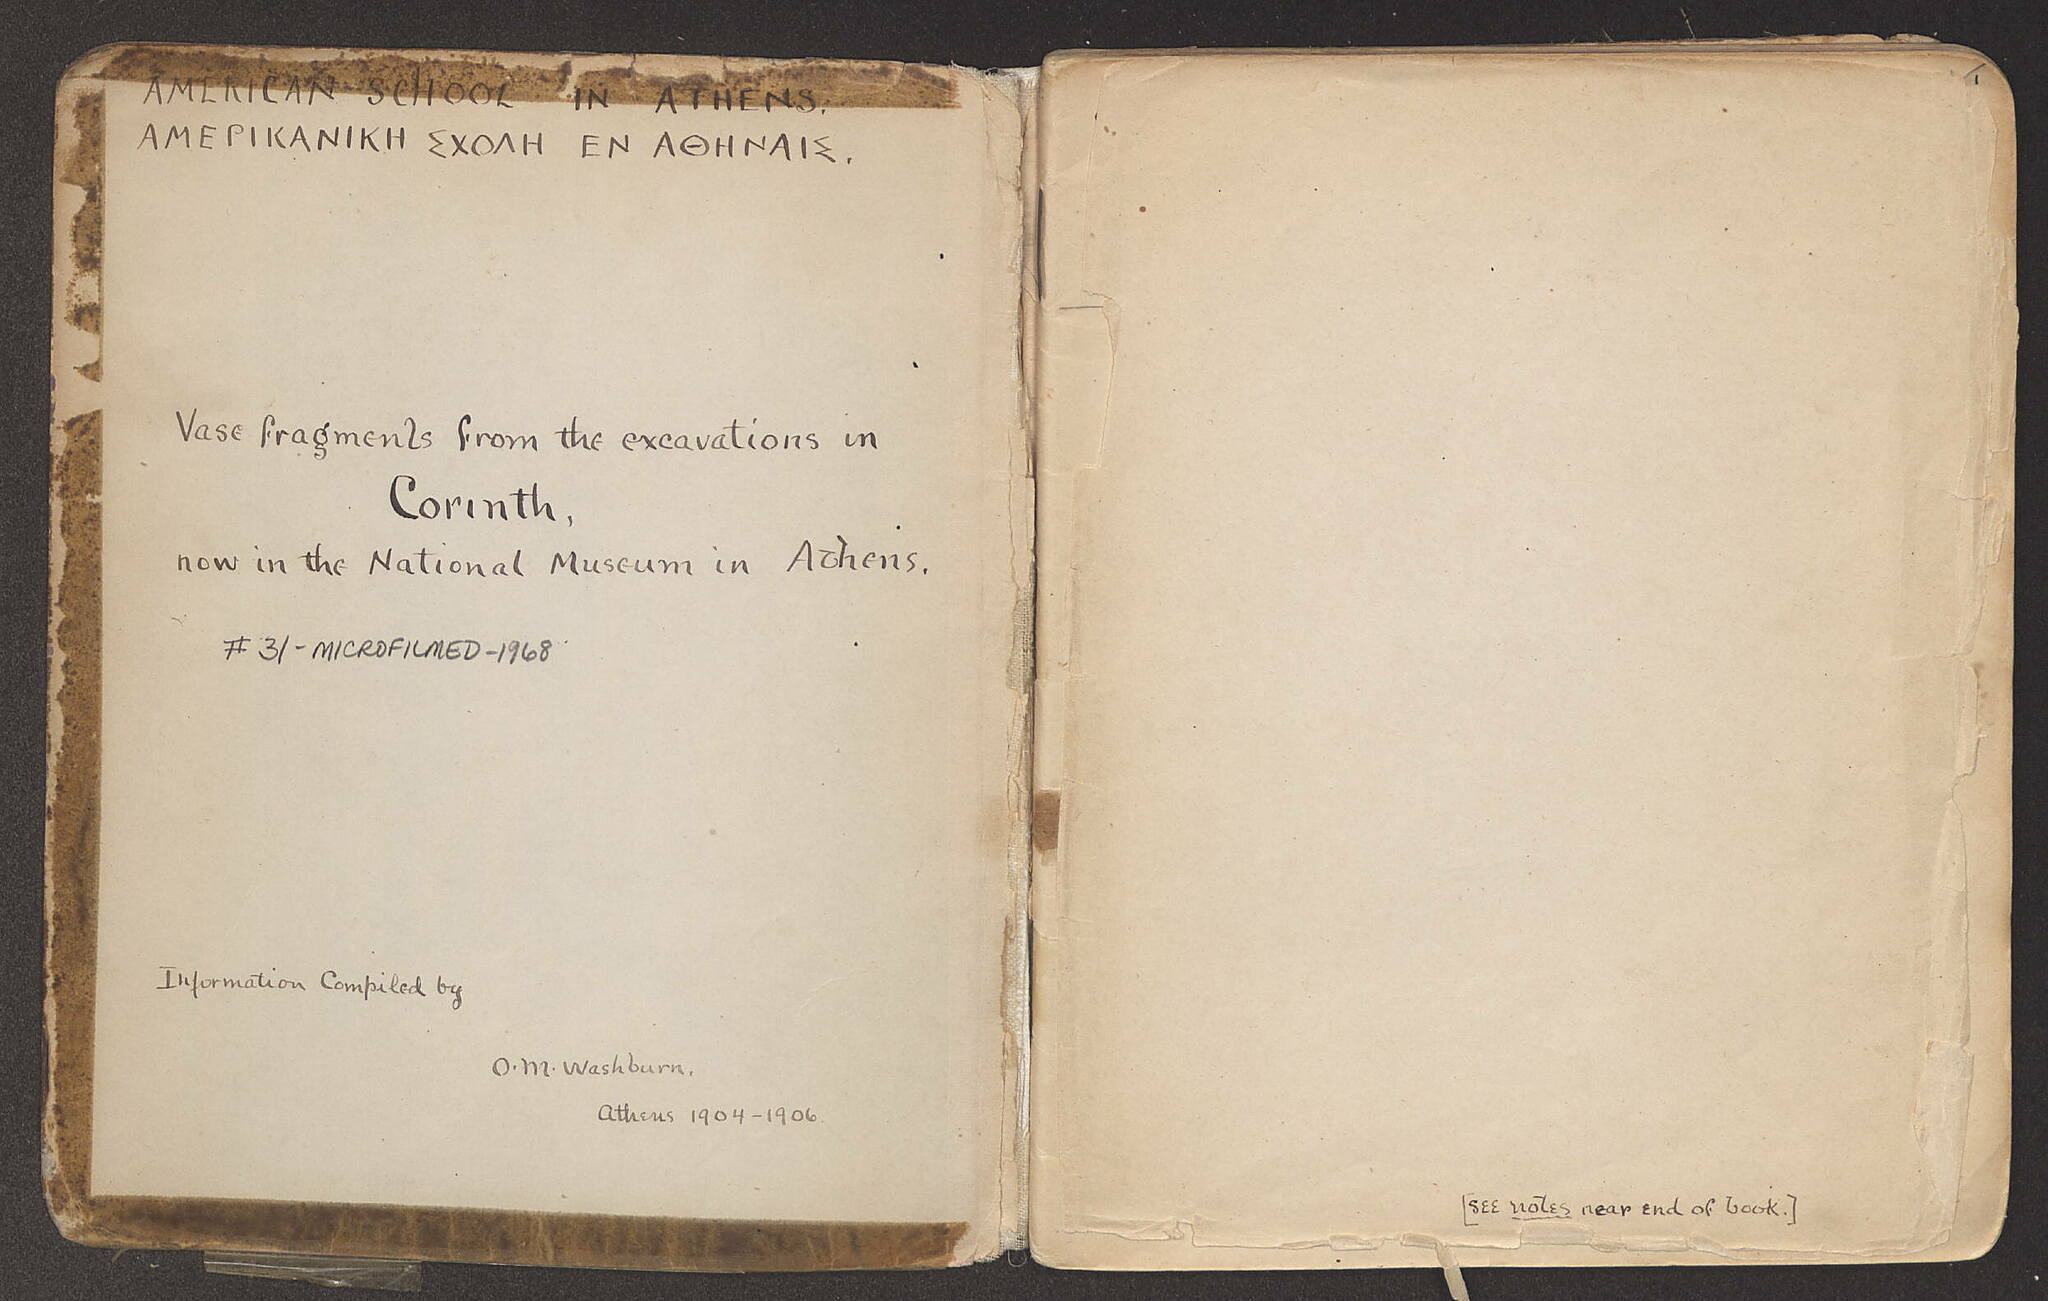 AMERICAN SCHOOL IN ATHENS.
ΑΜΕΡΙΚΑΝΙΚΗ ΣΧΟΛΗ ΕΝ ΑΘΗΝΑΙΣ.
Vase fragments from the excavations in
Corinth,
now in the National Museum in Athens.
# 31 - MICROFILMED - 1968
Information Compiled by
O. M. Washburn.
Athens 1904-1906
1
[SEE notes near end of book.]